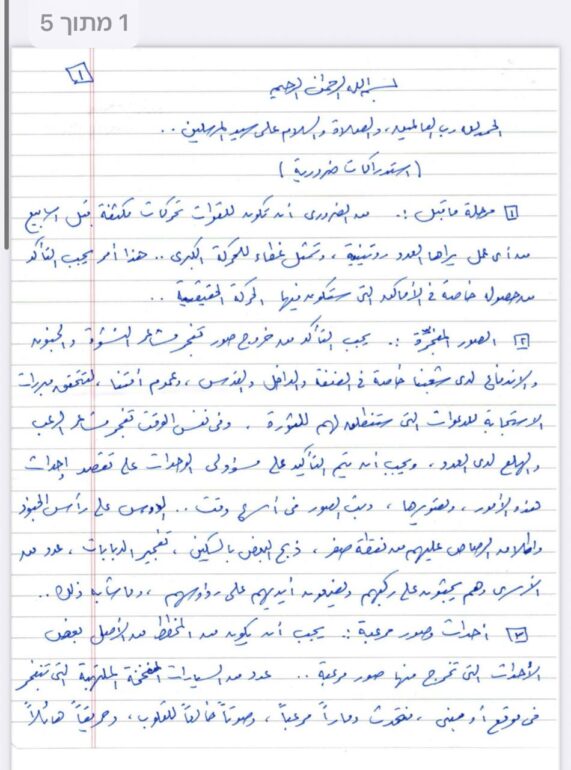 1 מתוך 5
١
بسم الله الرحمن الرحيم
الحمد لله رب العالمين، والصلاة والسلام على سيد المرسلين ..
( استدراكات ضرورية )
١ مرحلة ما قبل :. من الضروري أن تكون للقوات تحركات مكثفة قبل أسابيع
من أي عمل يراها العدو روتينية، وتمثل غطاء للحركة الكبرى .. هذا أمر يجب التأكد
من حصوله خاصة في الأماكن التي ستكون فيها الحركة الحقيقية ..
٢ الصور المفجّرة :. يجب التأكد من خروج صور تفجر مشاعر النشوة والجنون
والاندفاع لدى شعبنا خاصة في الضفة والداخل والقدس، وعموم أمتنا، لتتحقق مبررات
الاستجابة للدعوات التي ستنطلق لهم للثورة . وفي نفس الوقت تفجر مشاعر الرعب
والهلع لدى العدو، ويجب أن يتم التأكيد على مسؤولي الوحدات على تقصد إحداث
هذه الأمور، وتصويرها، وبث الصور في أسرع وقت .. الدوس على رأس الجنود
واطلاق الرصاص عليهم من نقطة صفر، ذبح البعض بالسكين، تفجير الدبابات، عدد من
الأسرى وهم يجثون على ركبهم ويضعون أيديهم على رؤوسهم، وما شابه ذلك ..
٣ أحداث وصور مرعبة :. يجب أن يكون من المخطط من الأصل بعض
الأحداث التي تخرج منها صور مرعبة .. عدد من السيارات المفخخة الملتهبة التي تنفجر
في موقع أو مبنى، فتحدث دماراً مرعباً، وصوتاً خالعاً للقلوب، وحريقاً هائلاً